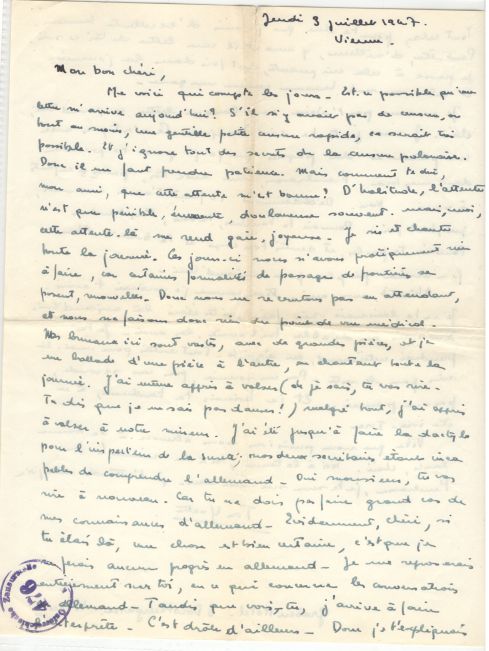 Jeudi 3 juillet 1947.
Vienne.
Mon bon chéri,
Me voici qui compte les jours. Est-ce possible qu'une
lettre m'arrive aujourd'hui? S'il n'y avait pas de censure, ou
tout au moins, une gentille petite censure rapide, ce serait très
possible. Et j'ignore tout des secrets de la censure polonaise.
Donc il me faut prendre patience. Mais comment te dire,
mon ami, que cette attente m'est bonne? D'habitude, l'attente
n'est que pénible, énervante, douloureuse souvent. mais, moi,
cette attente-là me rend gaie, joyeuse. Je ris et chante
toute la journée. Ces jours-ci nous n'avons pratiquement rien
à faire, car certaines formalités de passage de frontières se
posent, nouvelles. Donc nous ne recrutons pas en attendant,
et nous ne faisons donc rien du point de vue médical.
Nos bureaux ici sont vastes, avec de grandes pièces, et je
me ballade d'une pièce à l'autre, en chantant toute la
journée. J'ai même appris à valser (là je sais, tu vas rire.
Tu dis que je ne sais pas danser!) malgré tout, j'ai appris
à valser à notre mineur. J'ai été jusqu'à faire la dactylo
pour l'inspecteur de la sureté, nos deux secrétaires étant inca
pables de comprendre l'allemand - Oui monsieur, tu vas
rire à nouveau. Car tu ne dois pas faire grand cas de
mes connaissances d'allemand - Evidemment, chéri, si
tu étais là, une chose est bien certaine, c'est que je
ne ferais aucun progrès en allemand - Je me reposerais
entièrement sur toi, en ce qui concerne les conversations
allemand - Tandis que, vois-tu, j'arrive à faire
l'interprète - C'est drôle d'ailleurs - Donc je t'expliquais